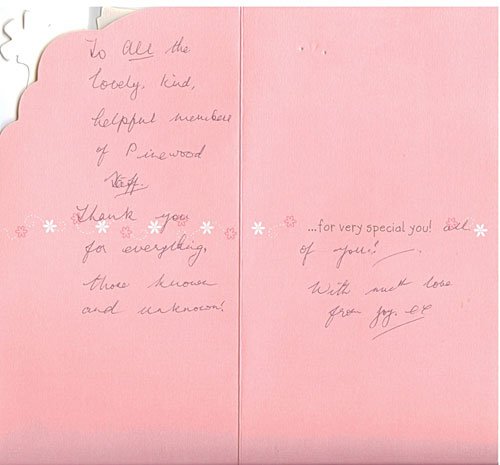 To All the
lovely, kind,
helpful members
of Pinewood
Staff.
Thank you
for everything,
those known
and unknown!
...for very special you! all
of you!!
With much love
from Joy. xx